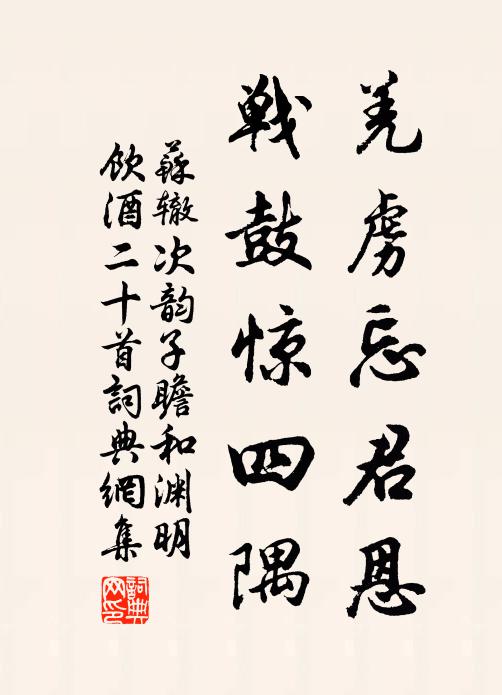 羌虜忘君恩
戦鼓惊四隅
蘇辙次韵子瞻和渊明
飲酒二十首詞典網集
詞典网印